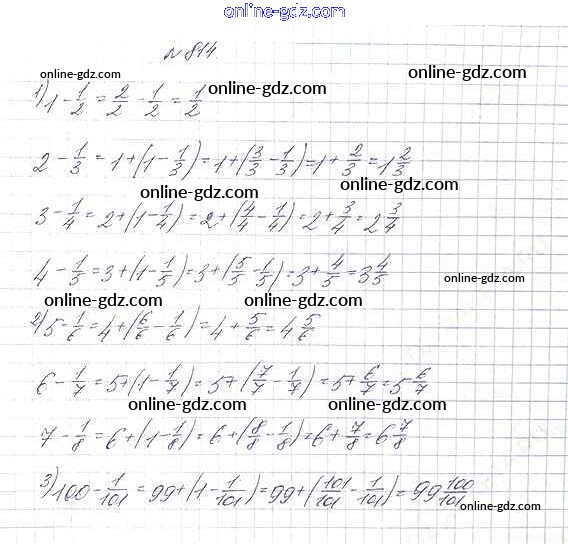 online-gdz.com
№814
online-gdz.com online-gdz.com online-gdz.com
1) 1 - 1/2 = 2/2 - 1/2 = 1/2
2 - 1/3 = 1 + (1 - 1/3) = 1 + (3/3 - 1/3) = 1 + 2/3 = 1 2/3
online-gdz.com online-gdz.com
3 - 1/4 = 2 + (1 - 1/4) = 2 + (4/4 - 1/4) = 2 + 3/4 = 2 3/4
4 - 1/5 = 3 + (1 - 1/5) = 3 + (5/5 - 1/5) = 3 + 4/5 = 3 4/5
online-gdz.com
online-gdz.com online-gdz.com
2) 5 - 1/6 = 4 + (6/6 - 1/6) = 4 + 5/6 = 4 5/6
6 - 1/7 = 5 + (1 - 1/7) = 5 + (7/7 - 1/7) = 5 + 6/7 = 5 6/7
online-gdz.com online-gdz.com
7 - 1/8 = 6 + (1 - 1/8) = 6 + (8/8 - 1/8) = 6 + 7/8 = 6 7/8
online-gdz.com online-gdz.com
3) 100 - 1/101 = 99 + (1 - 1/101) = 99 + (101/101 - 1/101) = 99 100/101
online-gdz.com